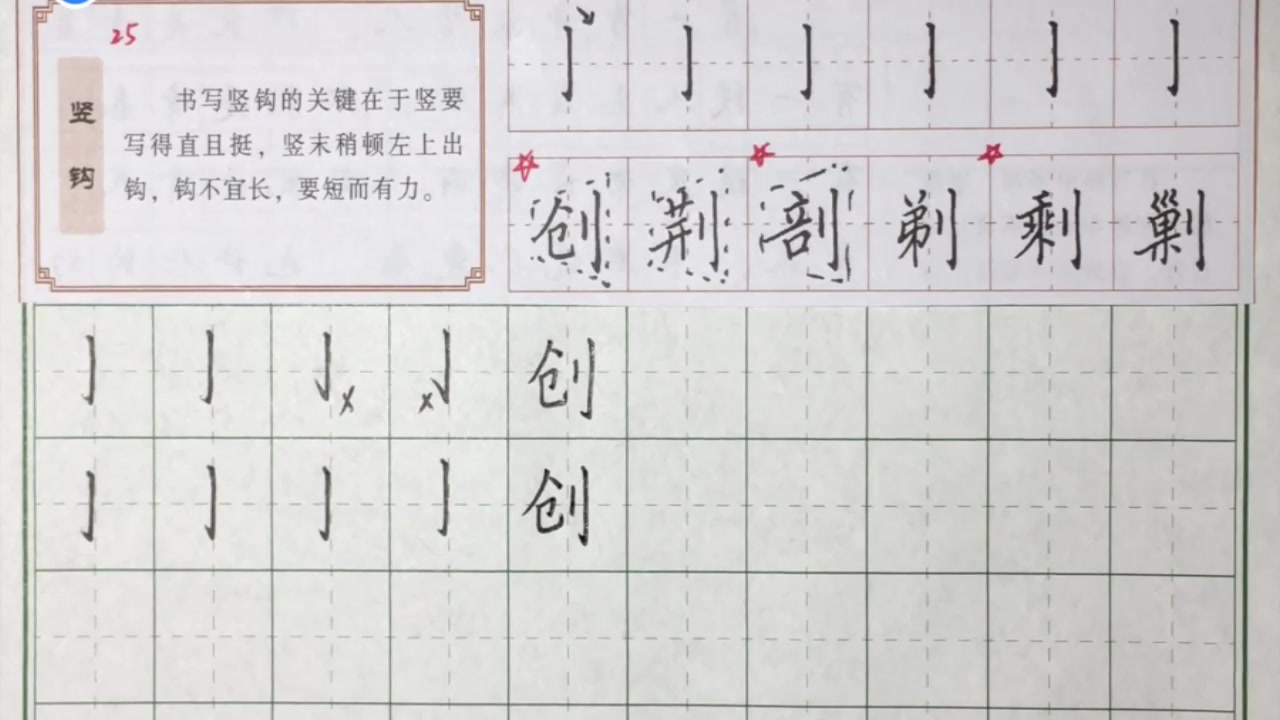 25
竖钩
书写竖钩的关键在于竖要
写得直且挺，竖末稍顿左上出
钩，钩不宜长，要短而有力。
亅亅亅亅亅亅
创荆剖剃剩剿
亅亅亅x x亅创
亅亅亅亅创